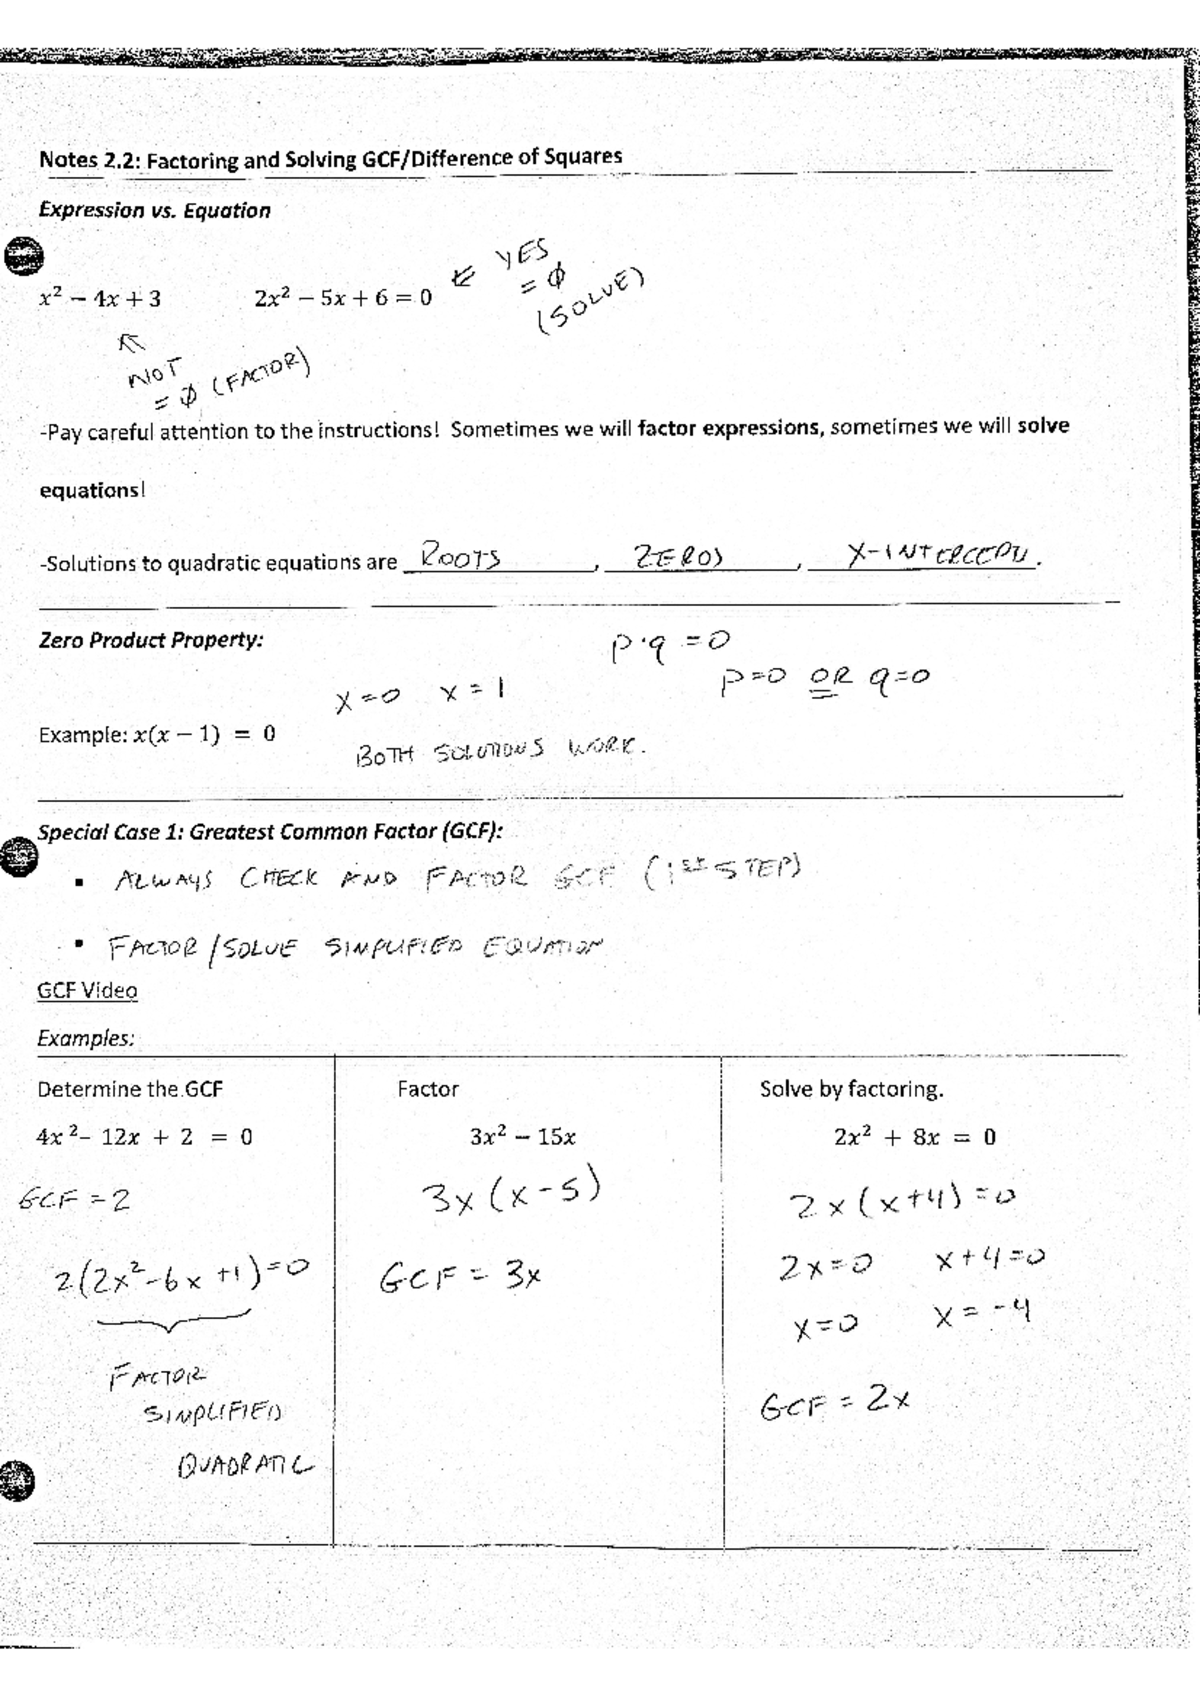 Notes 2.2: Factoring and Solving GCF/Difference of Squares
Expression vs. Equation
x² − 4x + 3
2x² − 5x + 6 = 0
YES
= ∅
(SOLVE)
NOT
= ∅ (FACTOR)
-Pay careful attention to the instructions! Sometimes we will factor expressions, sometimes we will solve
equations!
-Solutions to quadratic equations are ROOTS, ZEROS, X-INTERCEPTS.
Zero Product Property:
p·q = 0
p=0 OR q=0
x=0 x=1
Example: x(x − 1) = 0
BOTH SOLUTIONS WORK.
Special Case 1: Greatest Common Factor (GCF):
▪ ALWAYS CHECK AND FACTOR GCF (1ST STEP)
▪ FACTOR/SOLVE SIMPLIFIED EQUATION
GCF Video
Examples:
Determine the GCF
4x² – 12x + 2 = 0
GCF = 2
2(2x²-6x+1)=0
FACTOR
SIMPLIFIED
QUADRATIC
Factor
3x² − 15x
3x(x-5)
GCF = 3x
Solve by factoring.
2x² + 8x = 0
2x(x+4)=0
2x=0 x+4=0
x=0 x=-4
GCF = 2x